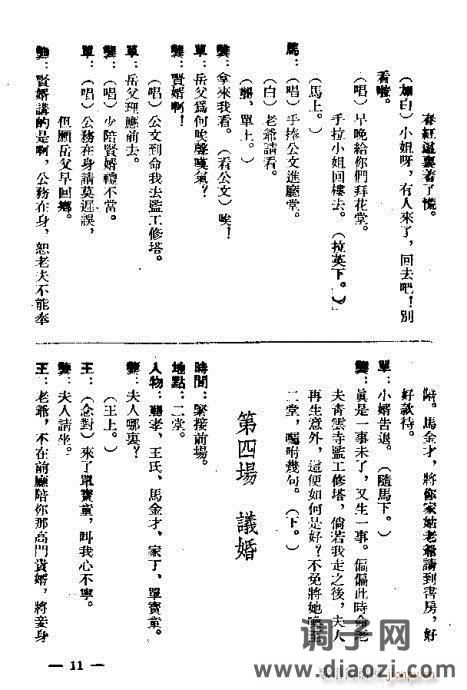 春紅這裏着了慌。
(加白)小姐呀,有人來了,回去吧!別
看啦。
(唱)早晚給你們拜花堂。
手拉小姐回樓去。(拉英下。)
(馬上。)
馬:(唱)手捧公文進廳堂。
(白)老爺請看。
(龔、單上。)
龔:拿來我看。(看公文)唉!
單:岳父爲何唉聲嘆氣?
龔:賢婿啊!
(唱)公文到命我去監工修塔。
單:岳父理應前去。
龔:(唱)少陪賢婿禮不當。
單:(唱)公務在身請莫遲誤,
但願岳父早回鄉。
龔:賢婿講的是啊,公務在身,恕老夫不能奉
陪。馬金才,將你家姑老爺請到書房,好
好款待。
單:小婿告退。(隨馬下。)
龔:眞是一事未了,又生一事。偏偏此時命老
夫靑雲寺監工修塔,倘若我走之後,夫人
再生意外,這便如何是好?不免將她喚至
二堂,囑咐幾句。(下。)
第四場 議婚
時間:緊接前場。
地點:二堂。
人物:龔孝、王氏、馬金才、家丁、單寶童。
龔:夫人哪裏?
(王上。)
王:(念對)來了單寶童,叫我心不寧。
龔:夫人請坐。
王:老爺,不在前廳陪你那高門貴婿,將妾身
— 11 —
调子网
www.diaozi.com